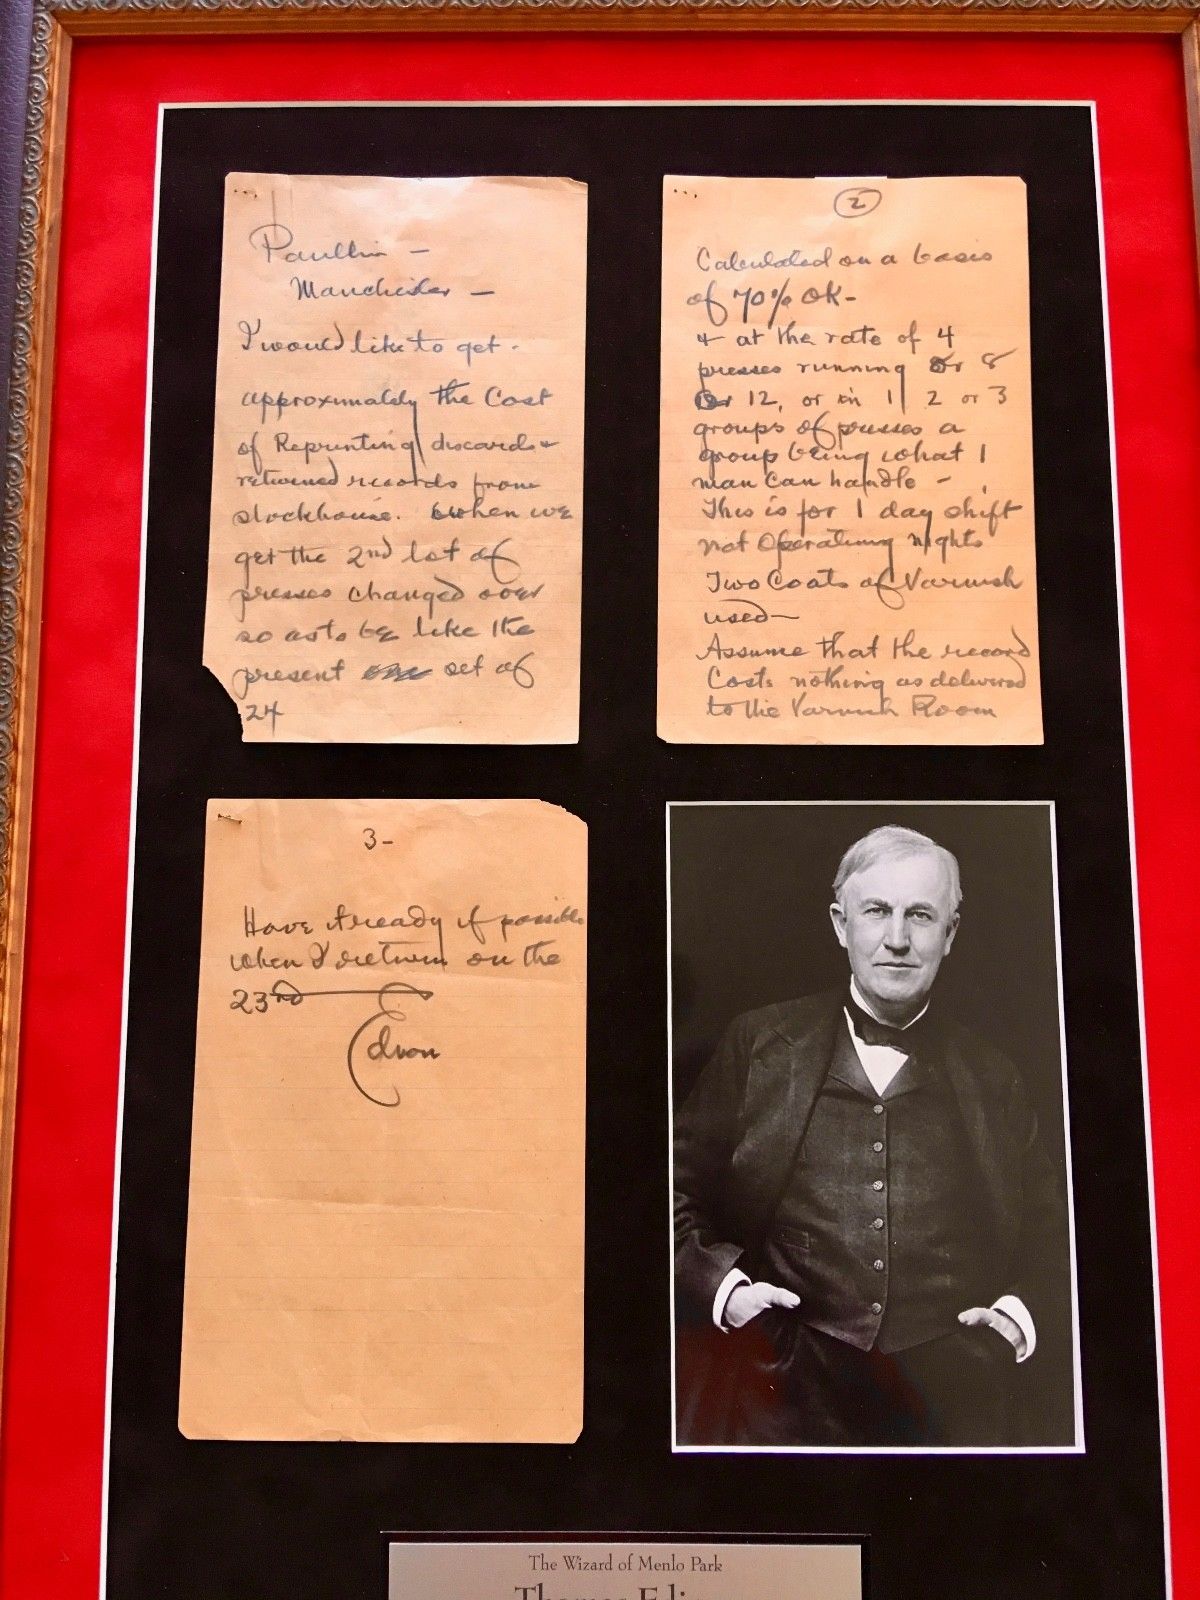 Paullin —
Manchester —
I would like to get
approximately the Cost
of Reprinting discards &
returned records from
stockhouse. When we
get the 2nd lot of
presses changed over
so as to be like the
present set of
24
2
Calculated on a basis
of 70% OK-
& at the rate of 4
presses running or 8
or 12, or in 1 2 or 3
groups of presses a
group being what 1
man can handle -
This is for 1 day shift
not Operating nights
Two Coats of Varnish
used—
Assume that the record
Costs nothing as delivered
to the Varnish Room
3-
Have it ready if possible
when I return on the
23rd
Edison
The Wizard of Menlo Park
Thomas Edi